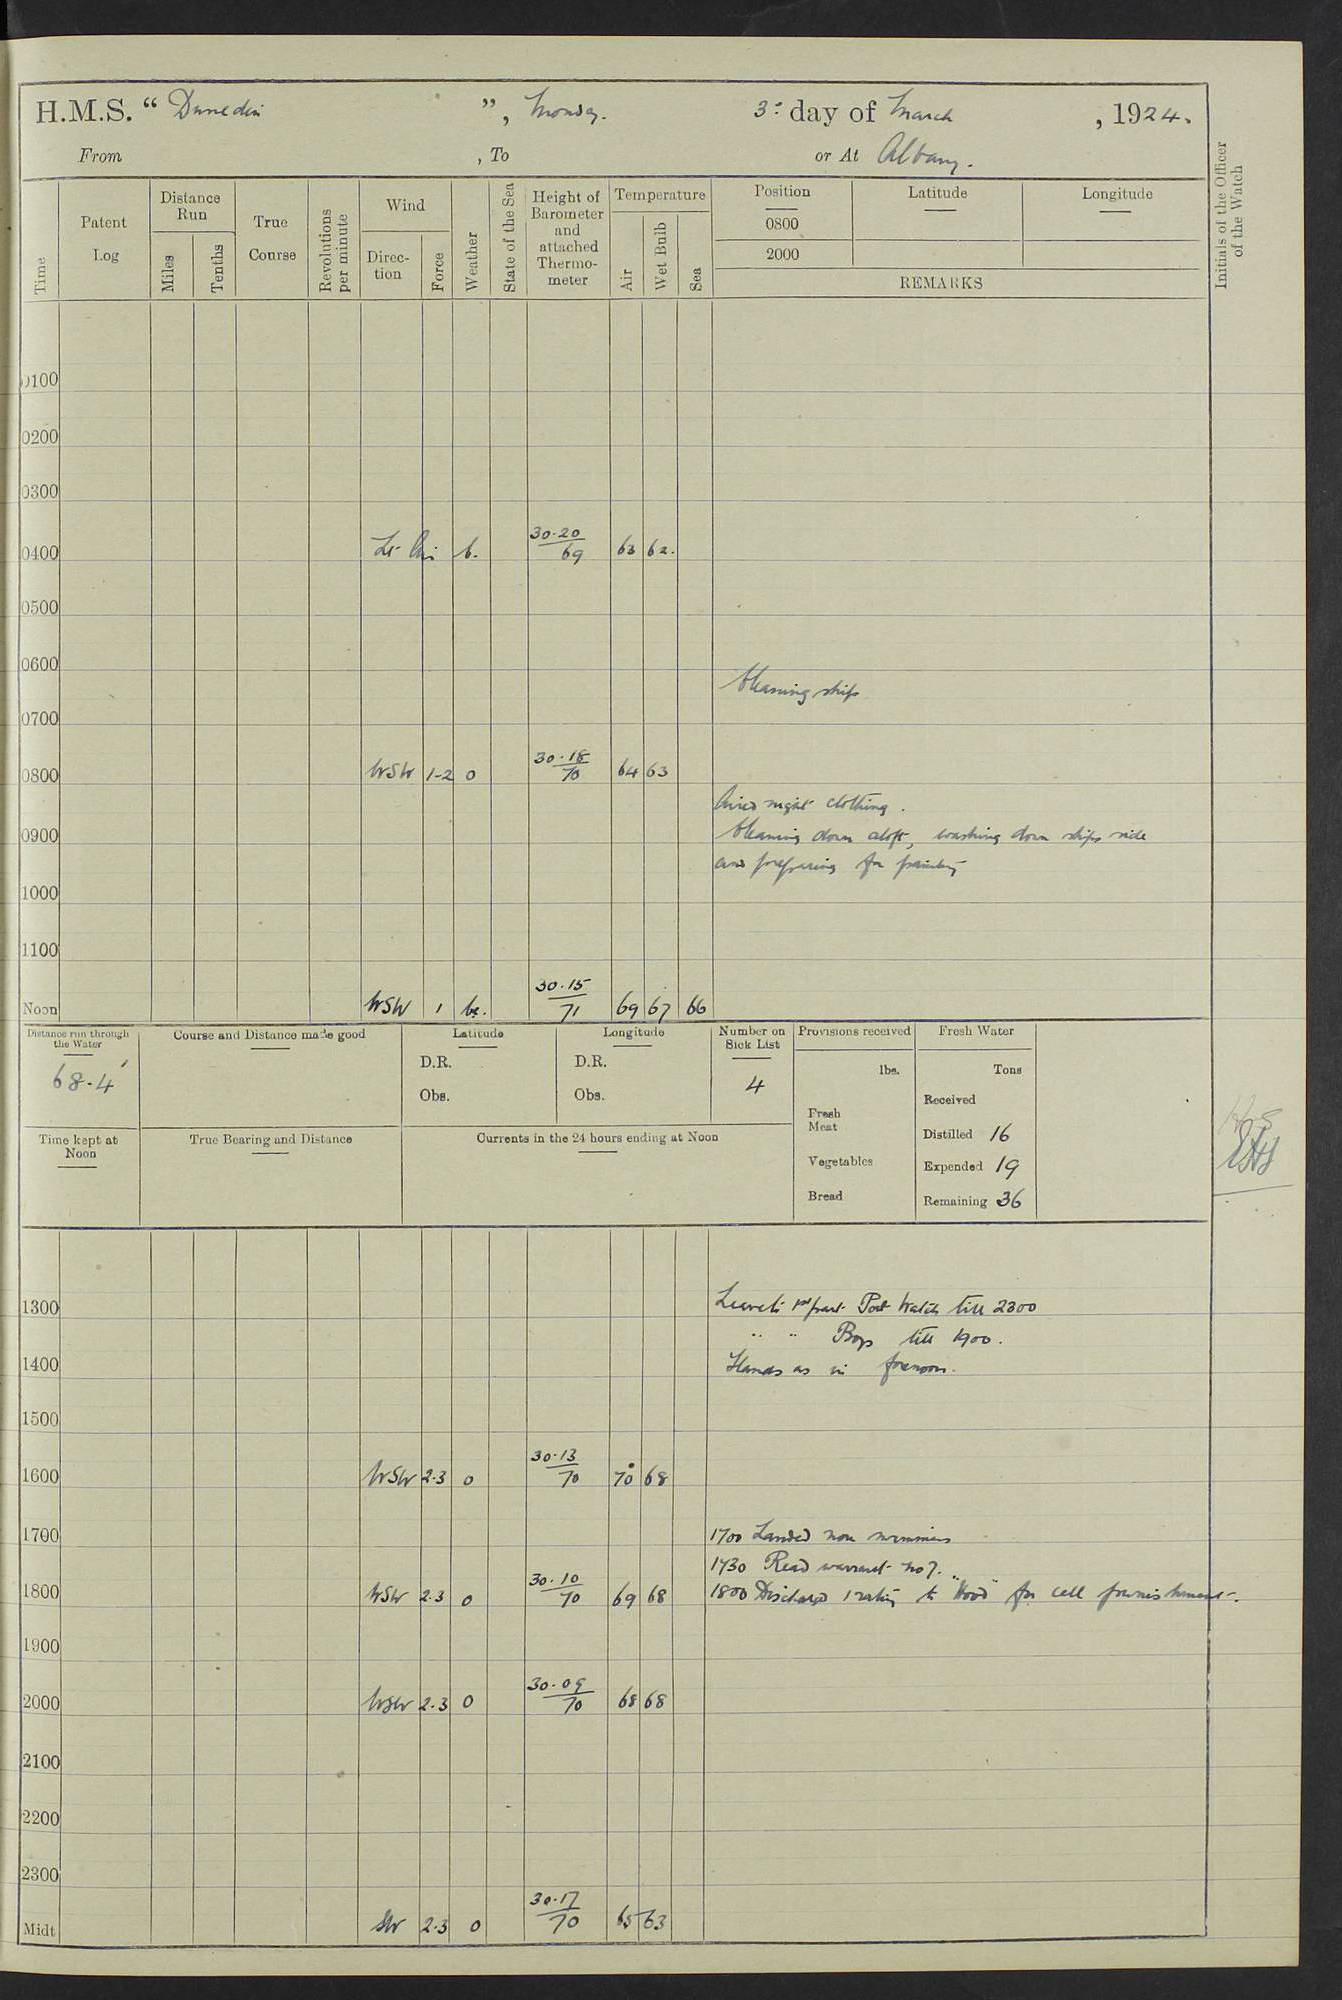 H.M.S. “ Dunedin ”, Monday. 3rd day of March , 1924.
From , To or At Albany.
Time
Patent Log
Distance Run
Miles
Tenths
True Course
Revolutions per minute
Wind
Direction
Force
Weather
State of the Sea
Height of Barometer and attached Thermometer
Temperature
Air
Wet Bulb
Sea
Position Latitude Longitude
0800
2000
REMARKS
Initials of the Officer of the Watch
0100
0200
0300
0400 Lt. Airs b. 30.20/69 63 62.
0500
0600
Cleaning ship
0700
0800 WSW 1-2 o 30.18/70 64 63
Aired night clothing.
0900 Cleaning down aloft, washing down ships side
and preparing for painting
1000
1100
Noon WSW 1 bc. 30.15/71 69 67 66
Distance run through the Water
68.4'
Course and Distance made good
Latitude
D.R.
Obs.
Longitude
D.R.
Obs.
Number on Sick List
4
Provisions received
lbs.
Fresh Meat
Vegetables
Bread
Fresh Water
Tons
Received
Distilled 16
Expended 19
Remaining 36
Time kept at Noon
True Bearing and Distance
Currents in the 24 hours ending at Noon
1300 Leave to 1st part Port Watch till 2300
" " Boys till 1900.
1400 Hands as in forenoon.
1500
1600 WSW 2-3 o 30.13/70 70 68
1700 1700 Landed non swimmers
1730 Read warrant No 7.
1800 WSW 2.3 o 30.10/70 69 68 1800 Discharged 1 rating to "Hood" for cell punishment.
1900
2000 WSW 2.3 o 30.09/70 68 68
2100
2200
2300
Midt SW 2.3 o 30.17/70 65 63